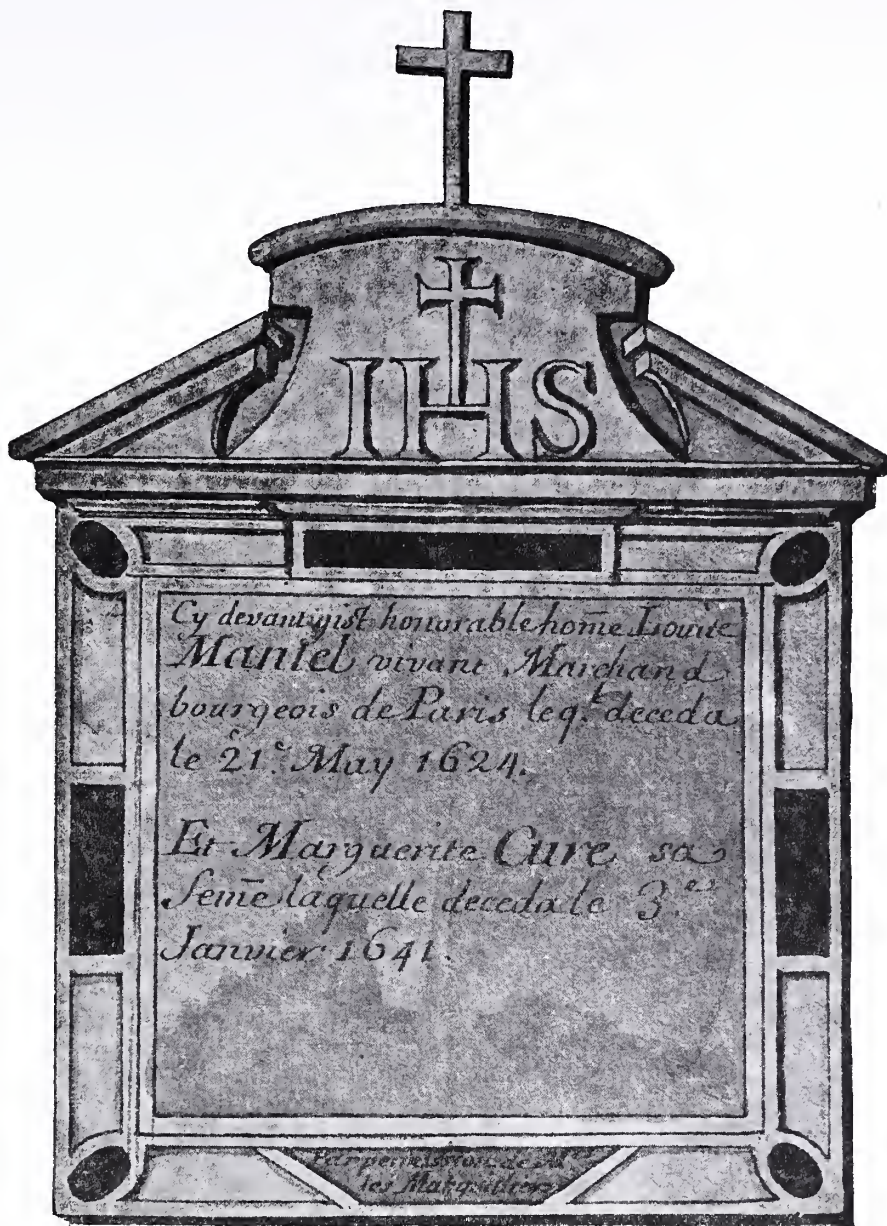 IHS
Cy devant gist honorable hom̄e Louite
Mantel vivant Marchand
bourgeois de Paris leq.t deceda
le 21.e May 1624.
Et Marguerite Cure sa
fem̄e laquelle deceda le 3.e
Janvier 1641.
Par permission de
les Marguilliers